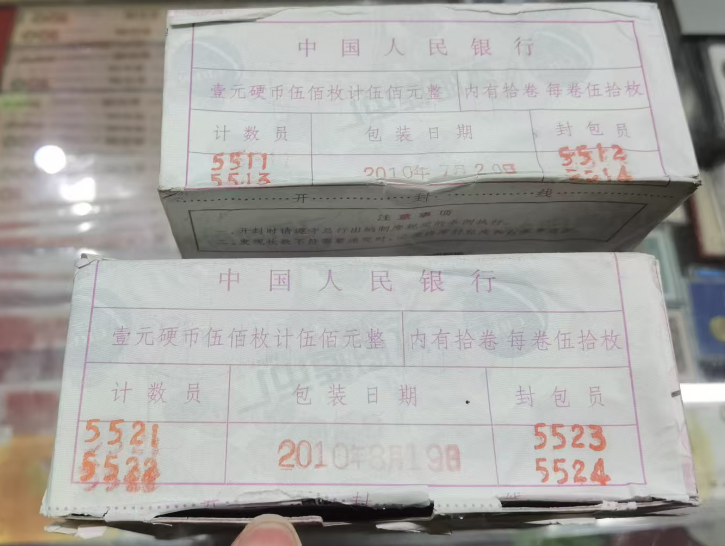 中国人民银行
壹元硬币伍佰枚计伍佰元整 内有拾卷 每卷伍拾枚
计数员 包装日期 封包员
5511 5512
5513 2010年7月20日 5514
开 封 线
注意事项
中国人民银行
壹元硬币伍佰枚计伍佰元整 内有拾卷 每卷伍拾枚
计数员 包装日期 封包员
5521 5523
5522 2010年8月19日 5524
开 封 线